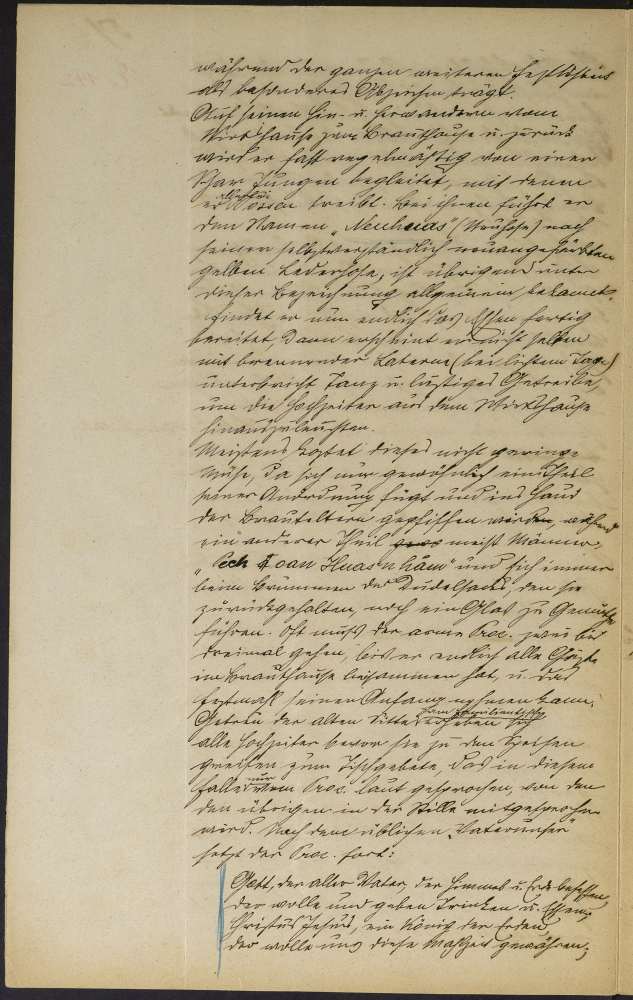 während der ganzen weiteren Festlichkeit
als besonderes Abzeichen trägt.
Auf seinen Hin- u. Herwandern vom
Wirtshause zum Brauthause u. zurück
wird er fast regelmäßig von einer
Schar Jungen begleitet, mit denen
er allerlei Possen treibt. Bei ihnen führt er
den Namen „Neuhuas" (Neuhose) nach
seiner selbstverständlich neuangefärbten
gelben Lederhose, ist übrigens unter
dieser Bezeichnung allgemein bekannt.
Findet er nun endlich das Essen fertig
bereitet, dann erscheint er nicht selten
mit brennender Laterne (bei lichtem Tage)
unterbricht Tanz u. lustiges Getreibe,
um die Hochzeiter aus dem Wirtshause
hinauszuleuchten.
Meistens kostet dieses nicht geringe
Mühe, da sich nur gewöhnlich ein Theil
seiner Anordnung fügt und ins Haus
der Brauteltern gepfiffen werden, während
ein anderer Theil meist Männer,
"koan Huas'n håm" und sich immer
beim Brummen des Dudelsacks, den sie
zurückgehalten, noch ein Glas zu Gemüthe
führen. Oft muß der arme Proc. zwei bis
dreimal gehen, bis er endlich alle Gäste
im Brauthause beisammen hat, u. das
Festmahl seinen Anfang nehmen kann.
Getreu der alten Sitte erheben sich
alle Hochzeiter bevor sie zu den Speisen
greifen zum Tischgebete, das in diesem
Falle nur vom Proc. laut gesprochen, von den
den übrigen in der Stille mitgesprochen
wird. Nach dem üblichen „Vaterunser"
setzt der Proc. fort:
Gott, der aller Vater, der Himmel u. Erde besessen,
der wolle uns geben Trinken u. Essen;
Christus Jesus, ein König der Erden,
der wolle uns diese Mahlzeit gewähren;